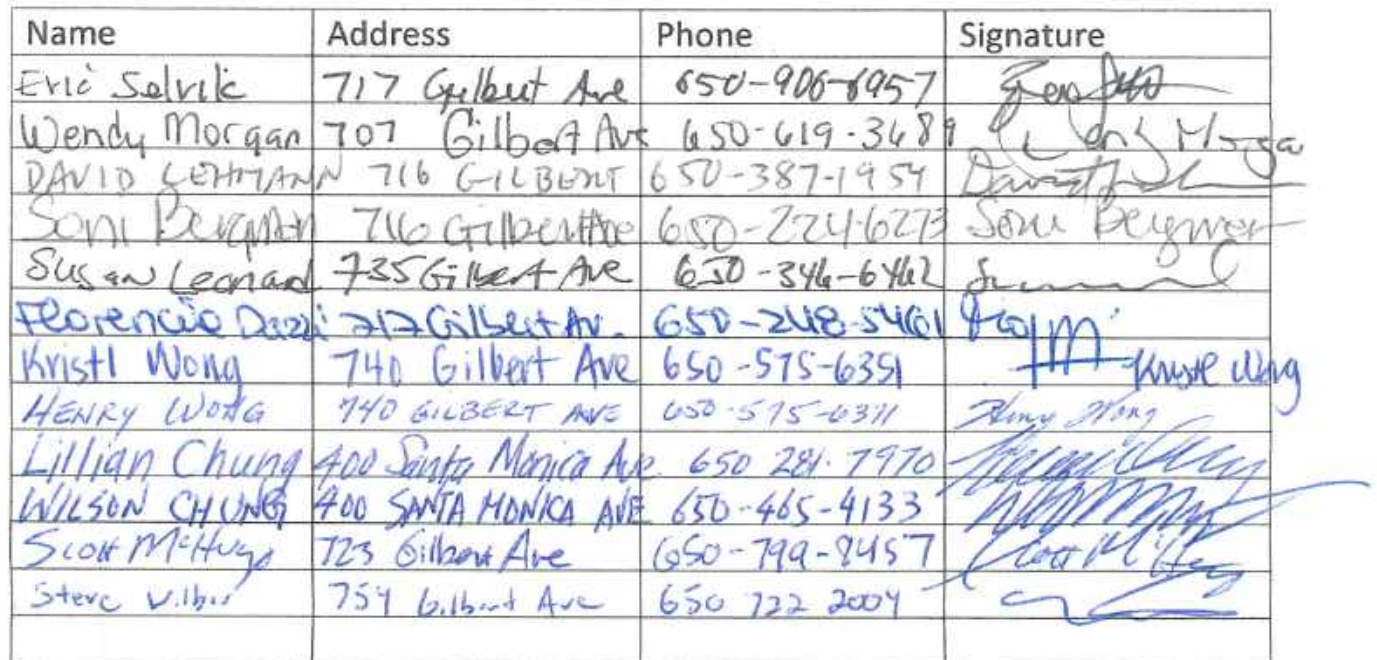 Name Address Phone Signature
Eric Selvik 717 Gilbert Ave 650-906-6957
Wendy Morgan 707 Gilbert Ave 650-619-3689 Wendy Morga
DAVID LEHMANN 716 GILBERT 650-387-1954
Soni Bergman 716 Gilbert Ave 650-224-6273 Soni Bergman
Susan Leonard 735 Gilbert Ave 650-346-6462
Florencia 717 Gilbert Av. 650-248-5461
Kristl Wong 740 Gilbert Ave 650-575-6351 Kristl Wong
HENRY WONG 740 GILBERT AVE 650-575-6371 Henry Wong
Lillian Chung 400 Santa Monica Ave. 650 281-7970
WILSON CHUNG 400 SANTA MONICA AVE 650-465-4133
Scott McHugh 723 Gilbert Ave 650-799-8457 Scott McHugh
Steve Wilbur 754 Gilbert Ave 650 722 2004